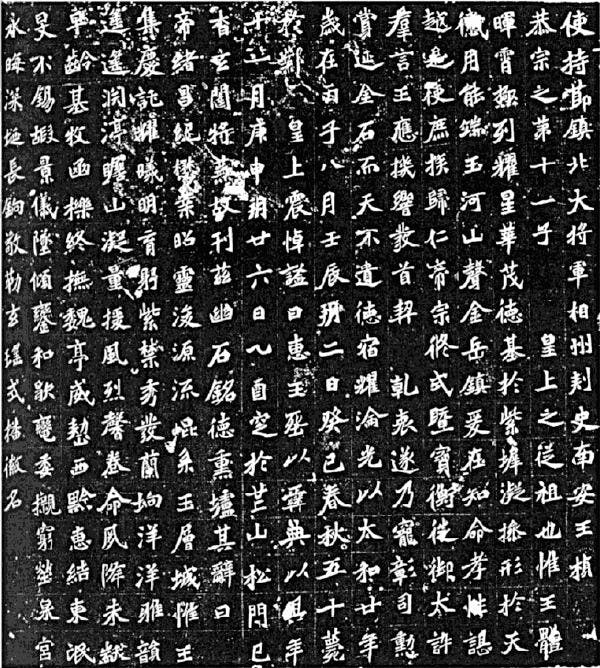 使持節鎮北大將軍相州刺史南安王楨
恭宗之第十一子 皇上之從祖也惟王體
暉霄極列耀星華茂德基於紫墀凝操形於天
儀用能端玉河山聲金岳鎮爰在知命孝性諶
越是使庶族歸仁帝宗攸式暨寶衡徙御太訏
羣言王應機響發首契 乾衷遂乃寵彰司勳
賞延金石而天不遺德宿耀淪光以太和廿年
歲在丙子八月壬辰朔二日癸巳春秋五十薨
於鄴 皇上震悼謚曰惠王葬以彝典以其年
十一月庚申朔廿六日乙酉窆於芒山松門已
杳玄闥將蕪故刊茲幽石銘德熏壚其辭曰
帝緒昌紀懋業昭靈浚源流崐系玉層城惟王
集慶託耀曦明育躬紫禁秀發蘭坰洋洋雅韻
遥遥淵渟瞻山凝量援風烈馨卷命夙降未黻
早齡基牧函櫟終撫魏亭威整西黔惠結東氓
旻不錫嘏景儀墜傾鑾和歇轡委櫬窮塋泉宮
永晦深埏長鉤敬勒玄瑤式播徽名